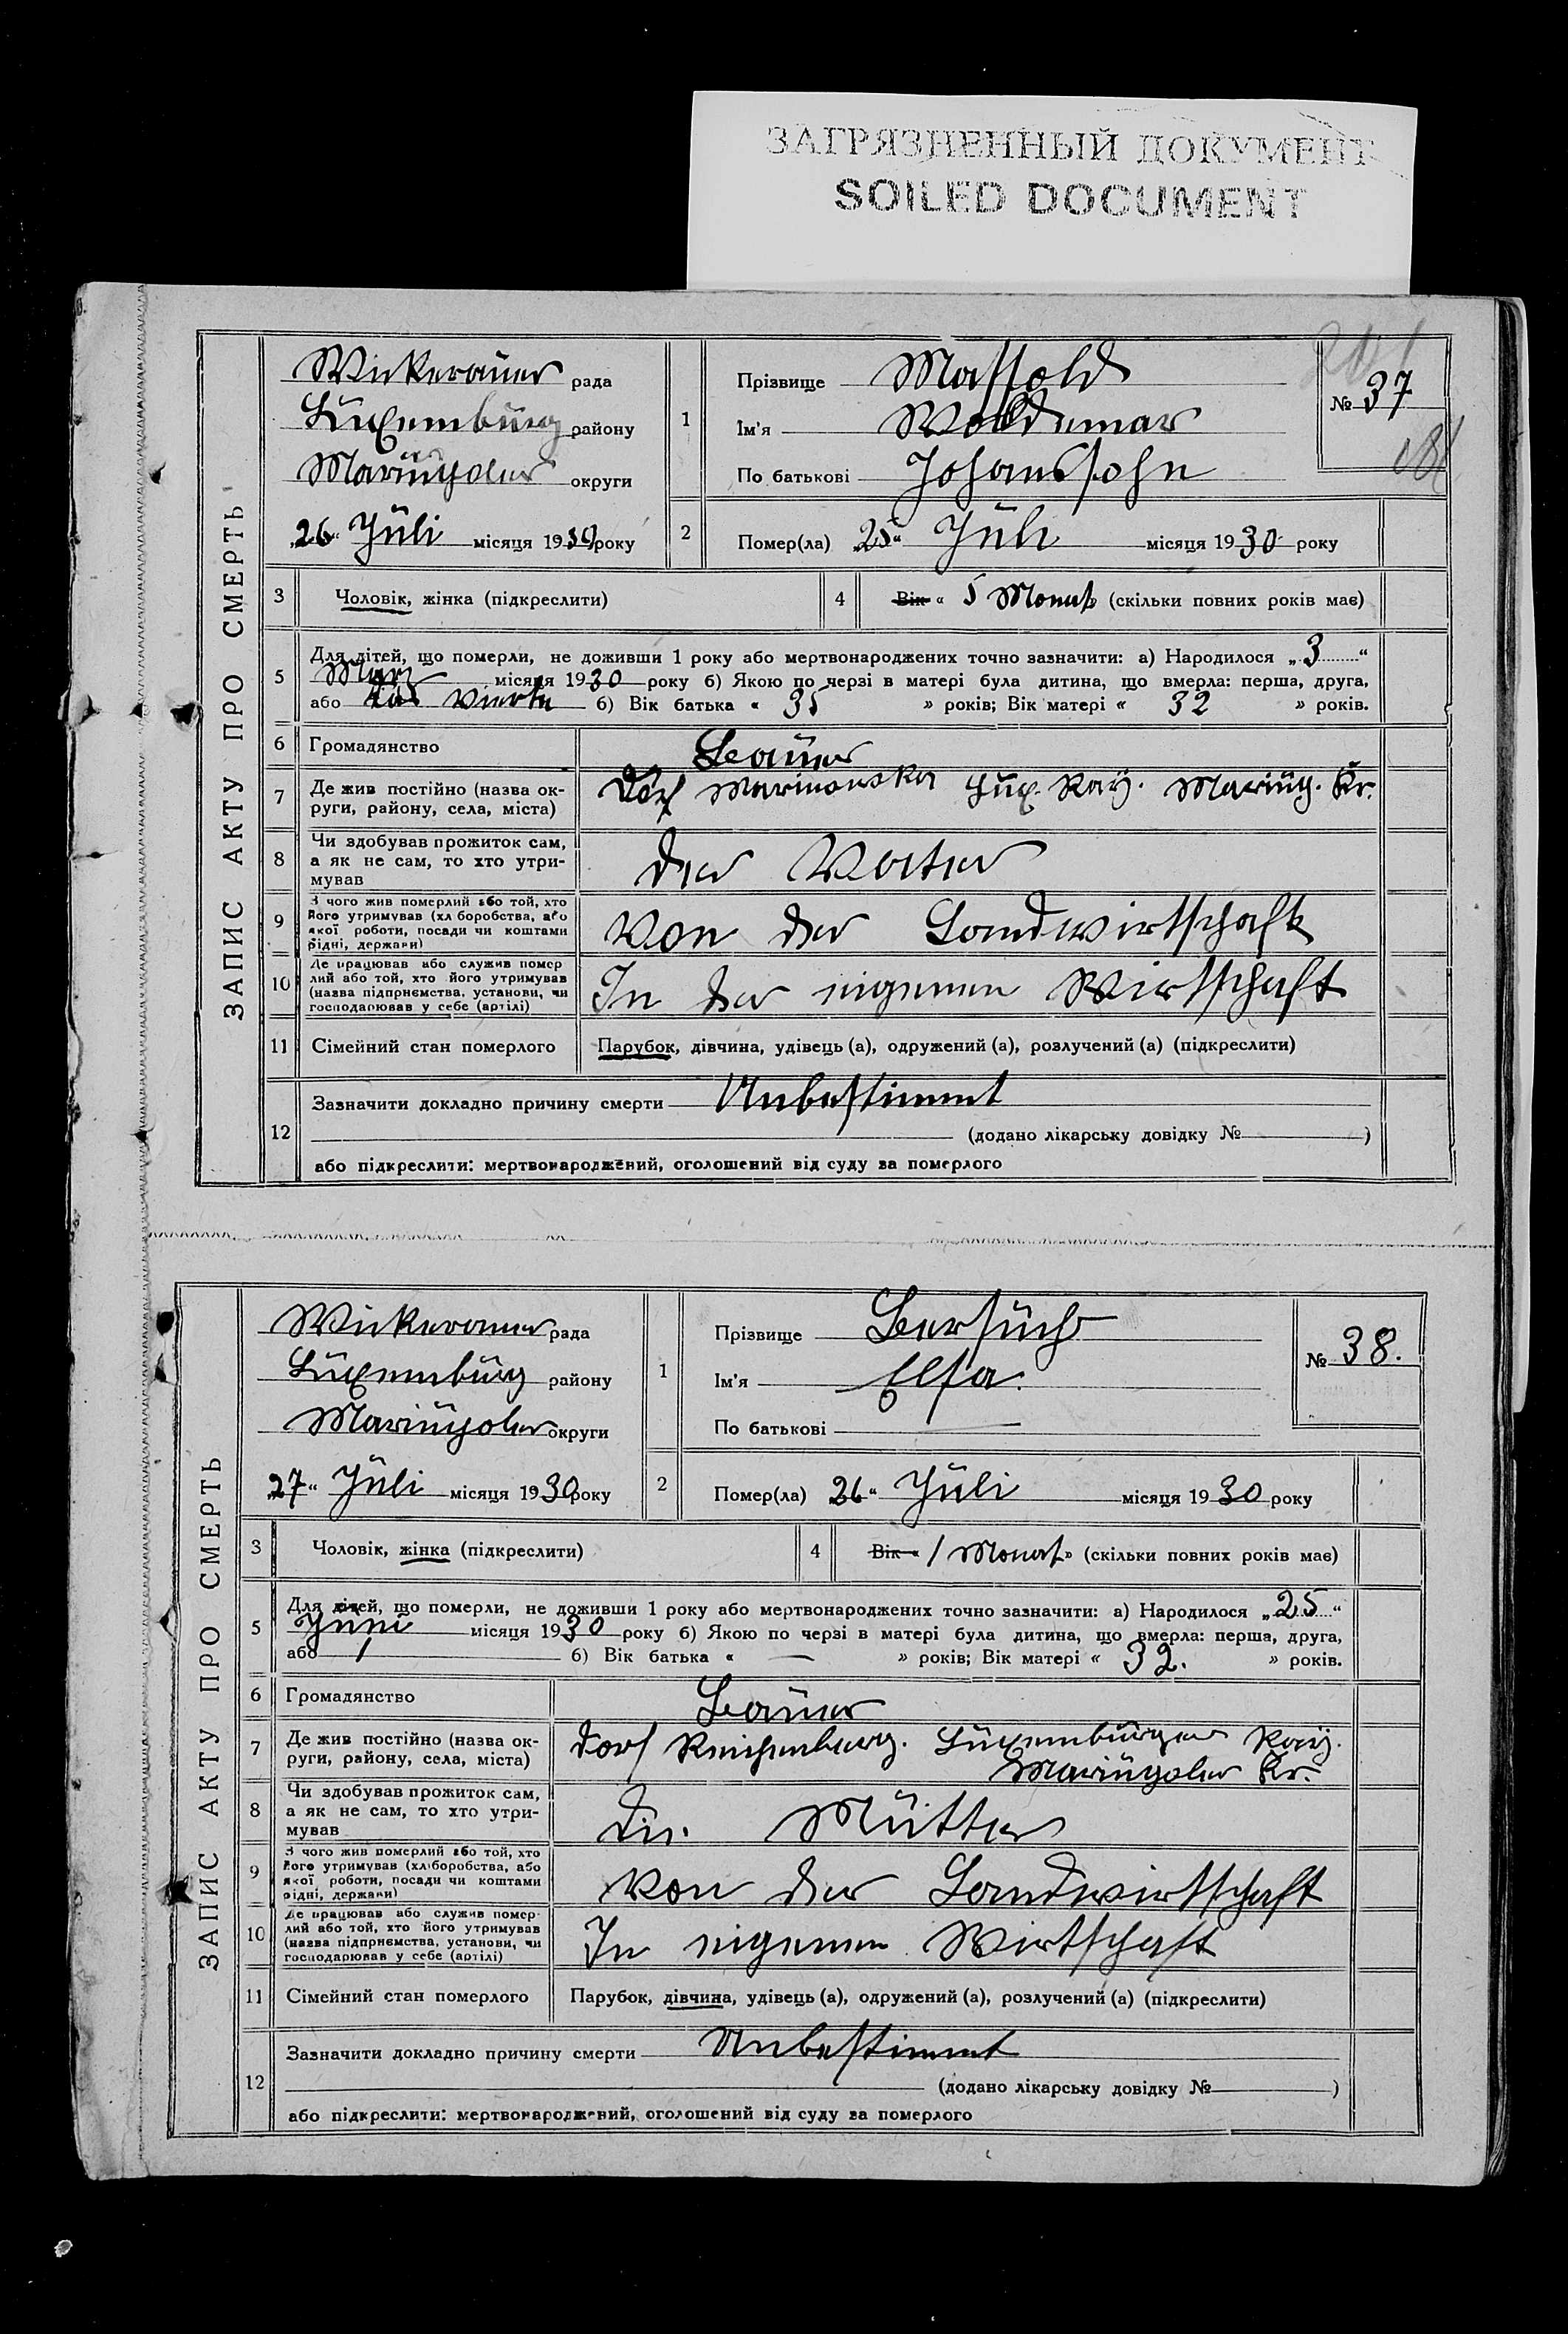 ЗАГРЯЗНЕННЫЙ ДОКУМЕНТ
SOILED DOCUMENT
ЗАПИС АКТУ ПРО СМЕРТЬ
Wickerauer рада
Luxemburg району
Mariupoler округи
„26“ Juli місяця 1930 року
1
Прізвище Massold
Ім'я Woldemar
По батькові Johanssohn
№ 37
181
2
Помер(ла) „25“ Juli місяця 1930 року
3 Чоловік, жінка (підкреслити)
4 Вік « 5 Monat » (скільки повних років має)
5 Для дітей, що померли, не доживши 1 року або мертвонароджених точно зазначити: а) Народилося „3“
März місяця 1930 року б) Якою по черзі в матері була дитина, що вмерла: перша, друга,
або das vierte б) Вік батька « 35 » років; Вік матері « 32 » років.
6 Громадянство Bauer
7 Де жив постійно (назва округи, району, села, міста) Dorf Marinowka Lux. Ray. Mariup. Kr.
8 Чи здобував прожиток сам, а як не сам, то хто утримував der Vater
9 З чого жив померлий або той, хто його утримував (хліборобства, або якої роботи, посади чи коштами рідні, держави) Von der Landwirtschaft
10 Де працював або служив померлий або той, хто його утримував (назва підприємства, установи, чи господарював у себе (артілі) In der eigenen Wirtschaft
11 Сімейний стан померлого Парубок, дівчина, удівець (а), одружений (а), розлучений (а) (підкреслити)
12 Зазначити докладно причину смерти Unbestimmt
(додано лікарську довідку № )
або підкреслити: мертвонароджений, оголошений від суду за померлого
ЗАПИС АКТУ ПРО СМЕРТЬ
Wickerauer рада
Luxemburg району
Mariupoler округи
„27“ Juli місяця 1930 року
1
Прізвище Bersuch
Ім'я Elsa.
По батькові —
№ 38.
2
Помер(ла) „26“ Juli місяця 1930 року
3 Чоловік, жінка (підкреслити)
4 Вік « 1 Monat » (скільки повних років має)
5 Для дітей, що померли, не доживши 1 року або мертвонароджених точно зазначити: а) Народилося „25“
Juni місяця 1930 року б) Якою по черзі в матері була дитина, що вмерла: перша, друга,
або 1 б) Вік батька « — » років; Вік матері « 32. » років.
6 Громадянство Bauer
7 Де жив постійно (назва округи, району, села, міста) Dorf Reichenberg. Luxemburger Ray.
Mariupoler Kr.
8 Чи здобував прожиток сам, а як не сам, то хто утримував Die. Mutter
9 З чого жив померлий або той, хто його утримував (хліборобства, або якої роботи, посади чи коштами рідні, держави) Von der Landwirtschaft
10 Де працював або служив померлий або той, хто його утримував (назва підприємства, установи, чи господарював у себе (артілі) In eigenen Wirtschaft
11 Сімейний стан померлого Парубок, дівчина, удівець (а), одружений (а), розлучений (а) (підкреслити)
12 Зазначити докладно причину смерти Unbestimmt
(додано лікарську довідку № )
або підкреслити: мертвонароджений, оголошений від суду за померлого